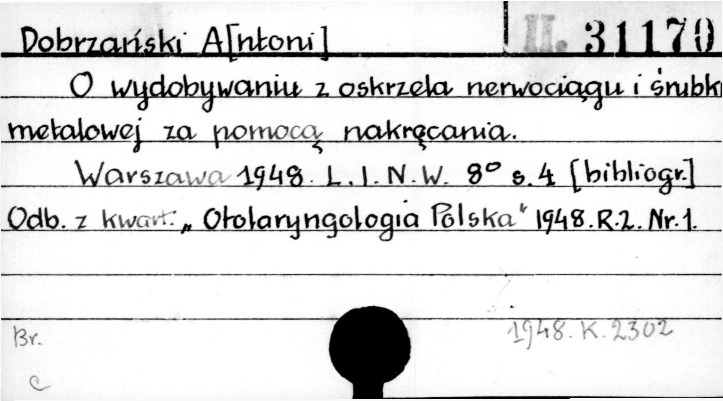 Dobrzański A[ntoni] II. 31170
O wydobywaniu z oskrzela nerwociągu i śrubk
metalowej za pomocą nakręcania.
Warszawa 1948. L.I.N.W. 8° s.4 [bibliogr.]
Odb. z kwart. „Otolaryngologia Polska" 1948.R.2. Nr.1.
Br. 1948.K.2302
c